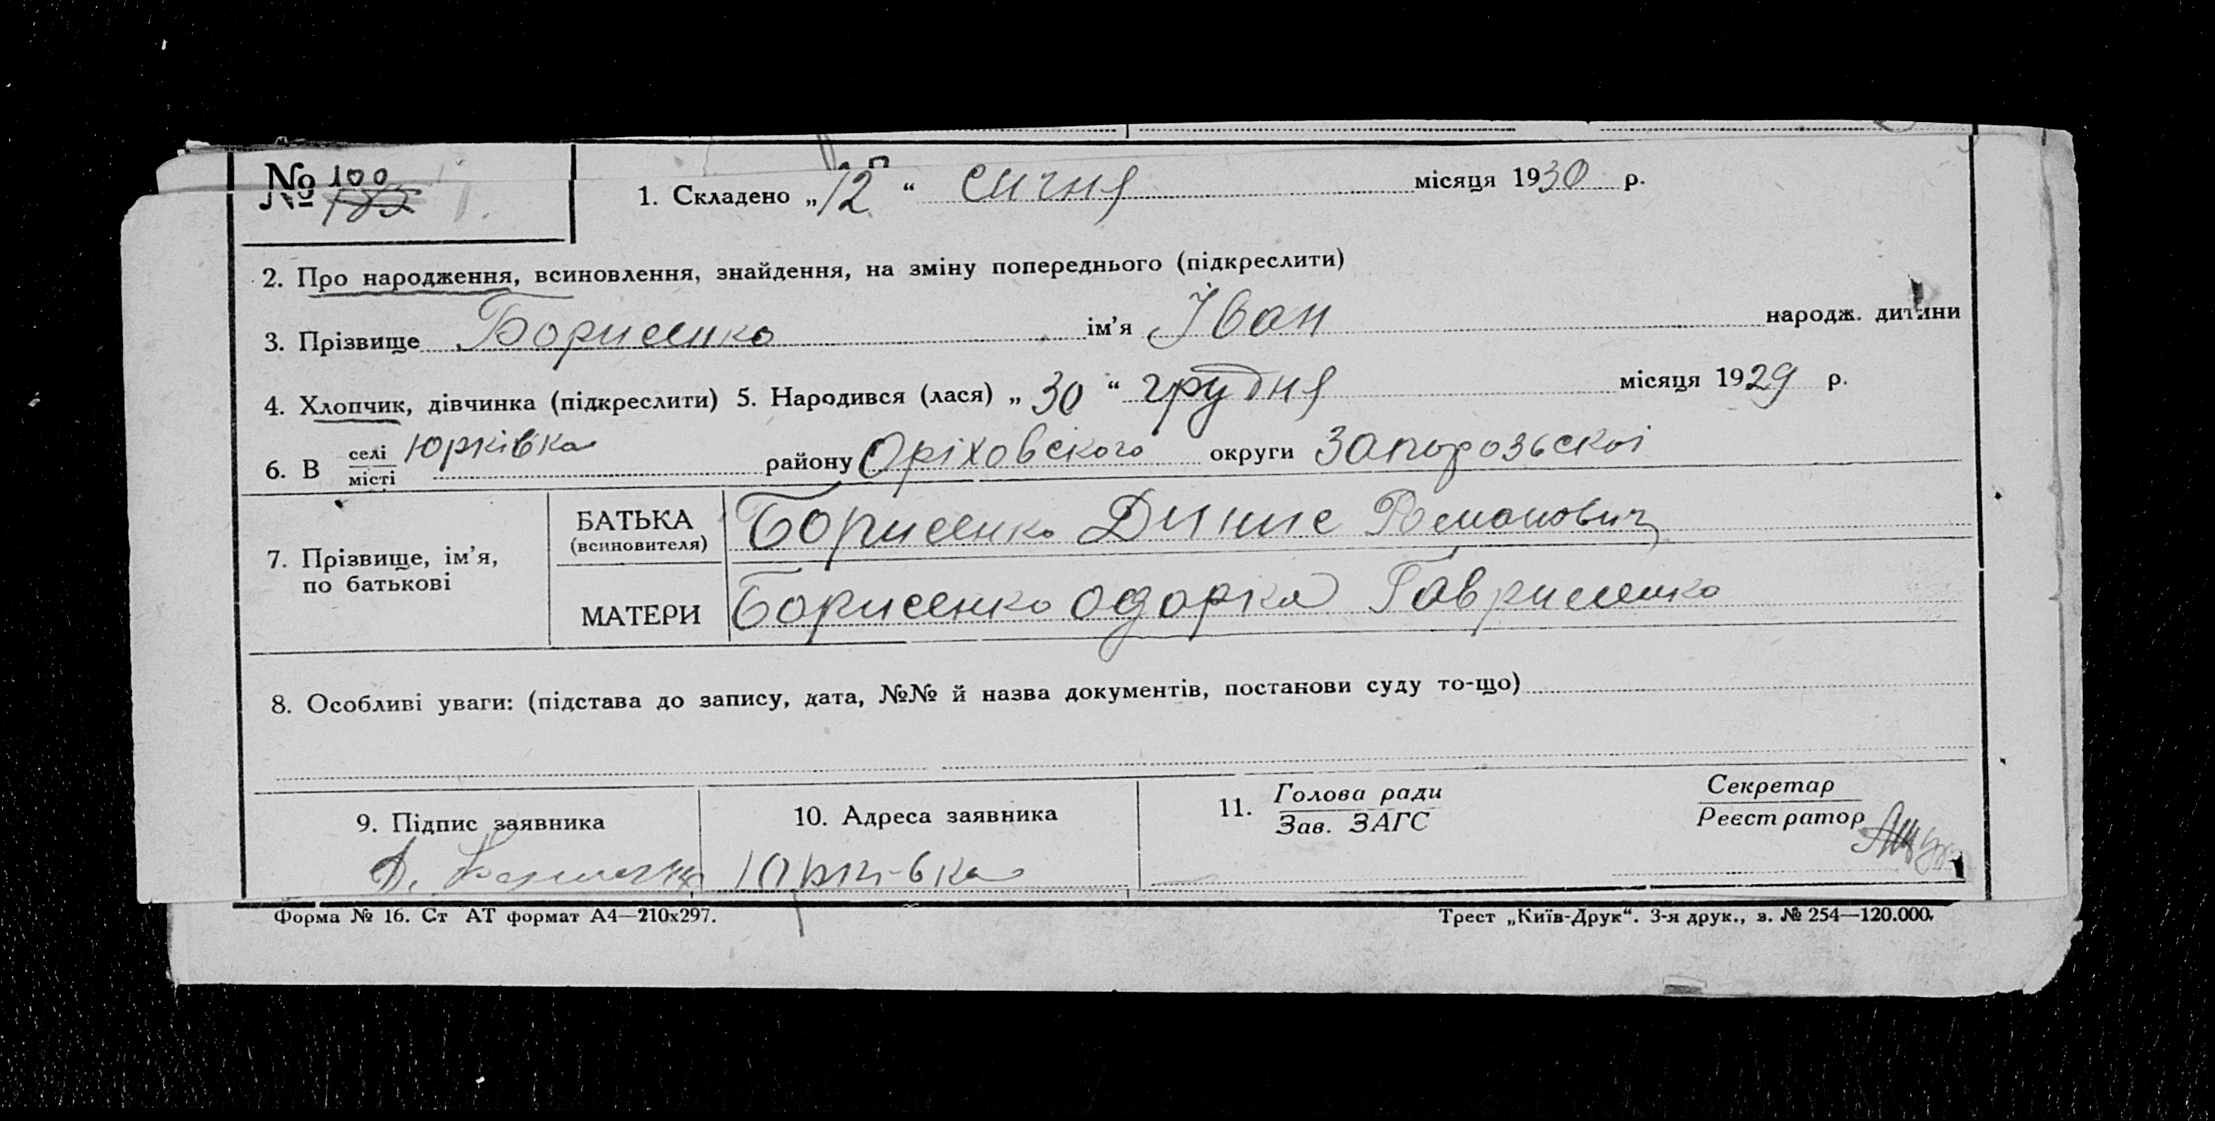 № 100
1. Складено „12“ січня місяця 1930 р.
2. Про народження, всиновлення, знайдення, на зміну попереднього (підкреслити)
3. Прізвище Борисенко ім’я Іван народж. дитини
4. Хлопчик, дівчинка (підкреслити) 5. Народився (лася) „30“ грудня місяця 1929 р.
6. В селі місті Юрківка району Оріховского округи Запорозьскоі
7. Прізвище, ім’я, по батькові
БАТЬКА (всиновителя) Борисенко Динис Романович
МАТЕРИ Борисенко Одарка
8. Особливі уваги: (підстава до запису, дата, №№ й назва документів, постанови суду то-що)
9. Підпис заявника
10. Адреса заявника
11. Голова ради Зав. ЗАГС
Секретар Реєстратор
Д. Юрківка
Форма № 16. Ст АТ формат А4—210х297.
Трест „Київ-Друк“. 3-я друк., з. № 254—120.000.